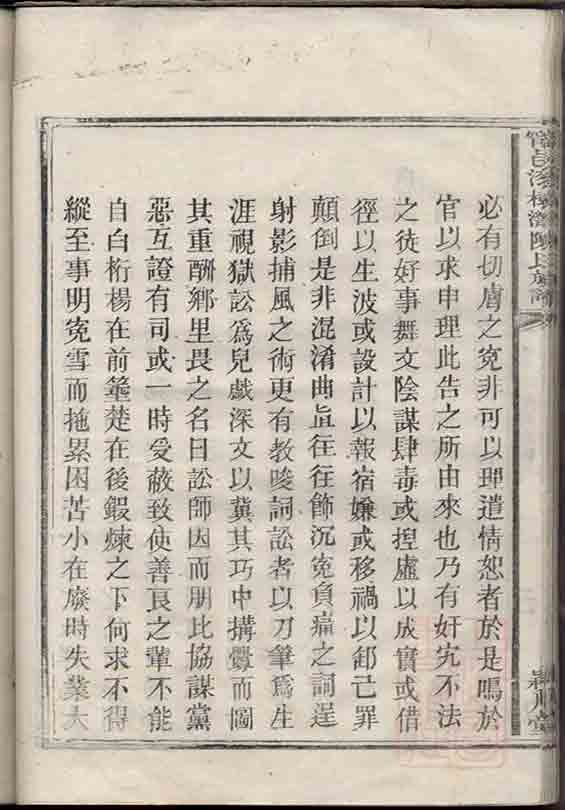 必有切膚之寃非可以理遣情恕者於是鳴於
官以求申理此告之所由來也乃有奸宄不法
之徒好事舞文陰謀肆毒或揑虛以成實或借
徑以生波或設計以報宿嫌或移禍以卸己罪
顛倒是非混淆曲直往往飾沉寃負痛之詞逞
射影捕風之術更有教唆詞訟者以刀筆爲生
涯視獄訟爲兒戲深文以冀其巧中搆釁而圖
其重酬鄉里畏之名曰訟師因而朋比協謀黨
惡互證有司或一時受蔽致使善良之輩不能
自白桁楊在前箠楚在後鍛煉之下何求不得
縱至事明寃雪而拖累困苦小在廢時失業大
陳氏族譜
潁川堂